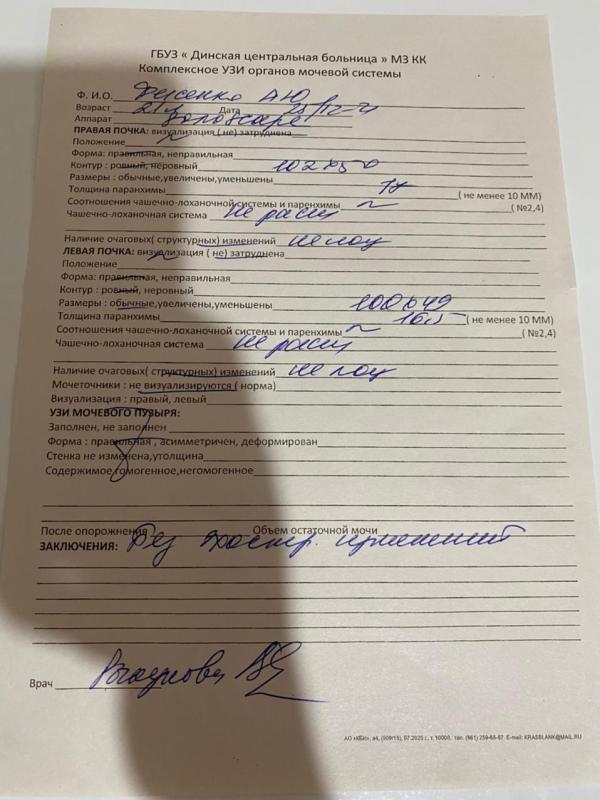 ГБУЗ « Динская центральная больница » МЗ КК
Комплексное УЗИ органов мочевой системы
Ф. И.О.
Возраст Дата
Аппарат
ПРАВАЯ ПОЧКА: визуализация ( не) затруднена
Положение ~
Форма: правильная, неправильная
Контур : ровный, неровный 102x50
Размеры : обычные,увеличены,уменьшены
Толщина паракимы ( не менее 10 ММ)
Соотношения чашечно-лоханочной системы и паренхимы ~ ( №2,4)
Чашечно-лоханочная система не расш
Наличие очаговых( структурных) изменений не лоц
ЛЕВАЯ ПОЧКА: визуализация ( не) затруднена
Положение ~
Форма: правильная, неправильная
Контур : ровный, неровный
Размеры : обычные,увеличены,уменьшены 100x49
Толщина паракимы 16,5 ( не менее 10 ММ)
Соотношения чашечно-лоханочной системы и паренхимы ~ ( №2,4)
Чашечно-лоханочная система не расш
Наличие очаговых( структурных) изменений не лоц
Мочеточники : не визуализируются ( норма)
Визуализация : правый, левый
УЗИ МОЧЕВОГО ПУЗЫРЯ:
Заполнен, не заполнен
Форма : правильная , асимметричен, деформирован
Стенка не изменена,утолщина
Содержимое,гомогенное,негомогенное
После опорожнения Объем остаточной мочи
ЗАКЛЮЧЕНИЯ: Без изменений
Врач
АО «КБИ», а4, (909/15), 07.2020 г., т. 10000, тел. (861) 259-68-67. E-mail: KRASBLANK@MAIL.RU